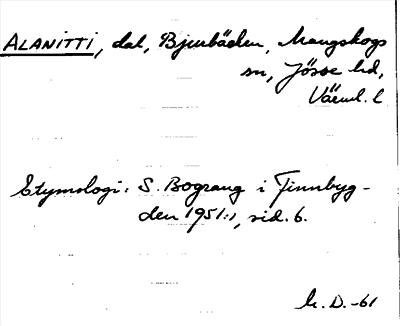 ALANITTI, dal, Bjurbäcken, Mangskogs
sn, Jösse hd,
Värml. l
Etymologi: S. Bograng i Finnbyg-
den 1951:1, sid. 6.
D. -61